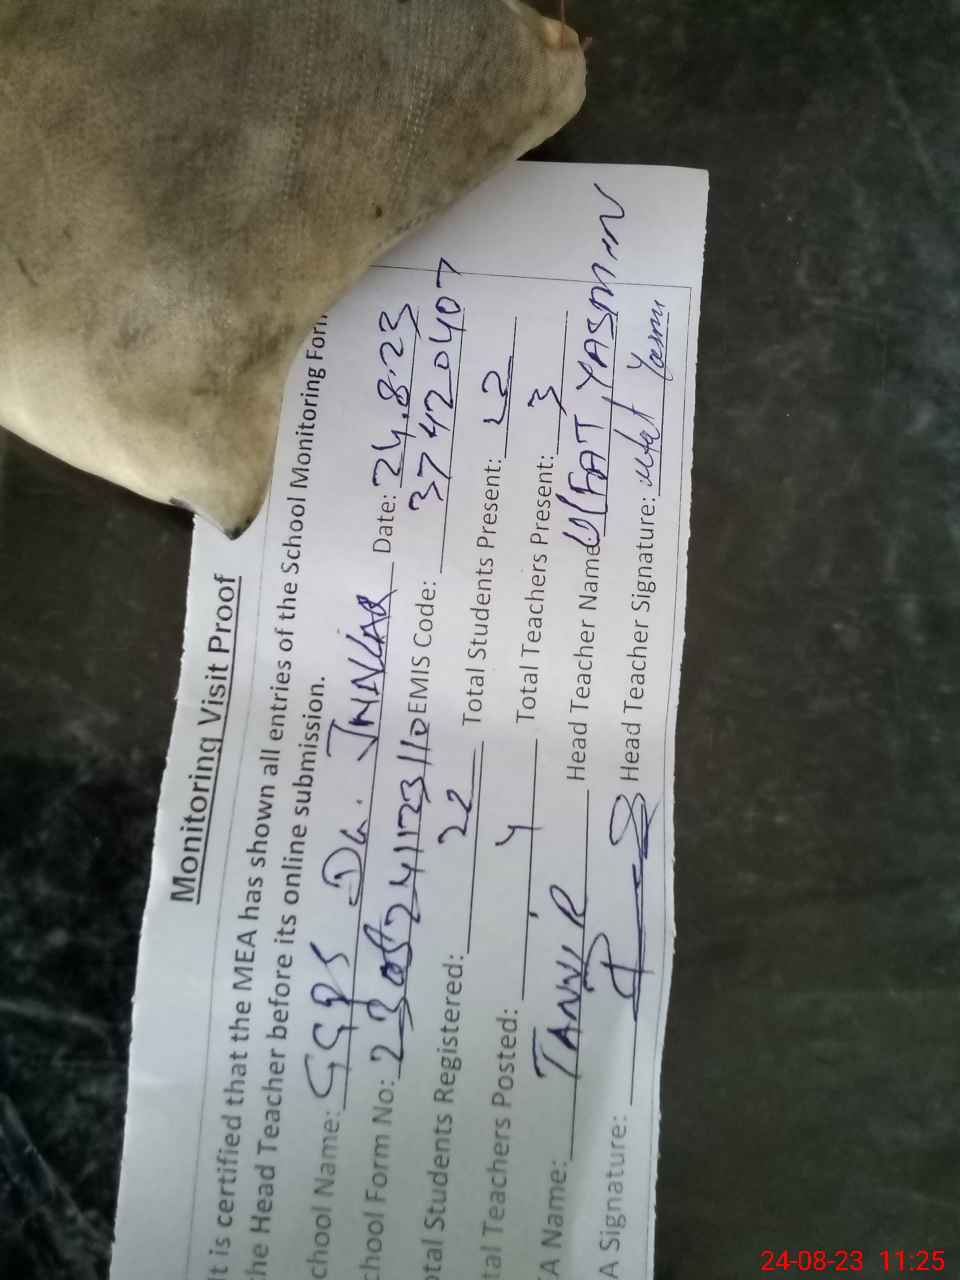 Monitoring Visit Proof
It is certified that the MEA has shown all entries of the School Monitoring Form
he Head Teacher before its online submission.
chool Name: GGPS Dk. JNNKAR Date: 24.8.23
chool Form No: EMIS Code: 37420407
otal Students Registered: 22 Total Students Present: 22
tal Teachers Posted: 4 Total Teachers Present: 3
A Name: TANVIR Head Teacher Name: ULFAT YASMIN
A Signature: Head Teacher Signature: Ulfat Yasmin
24-08-23 11:25